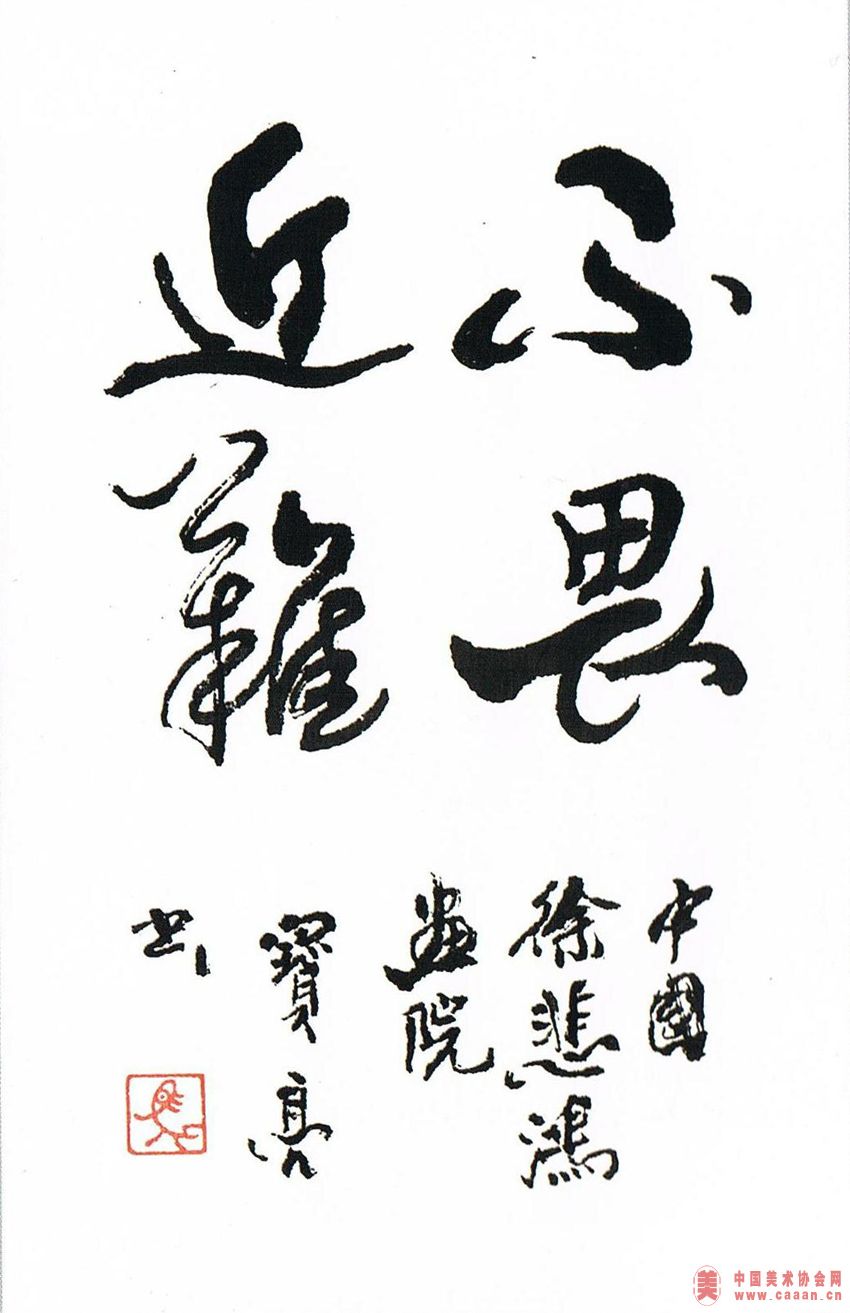 不畏
近難
中國
徐悲鴻
畫院
寶亮
书
美
中国美术协会网
www.caaan.cn